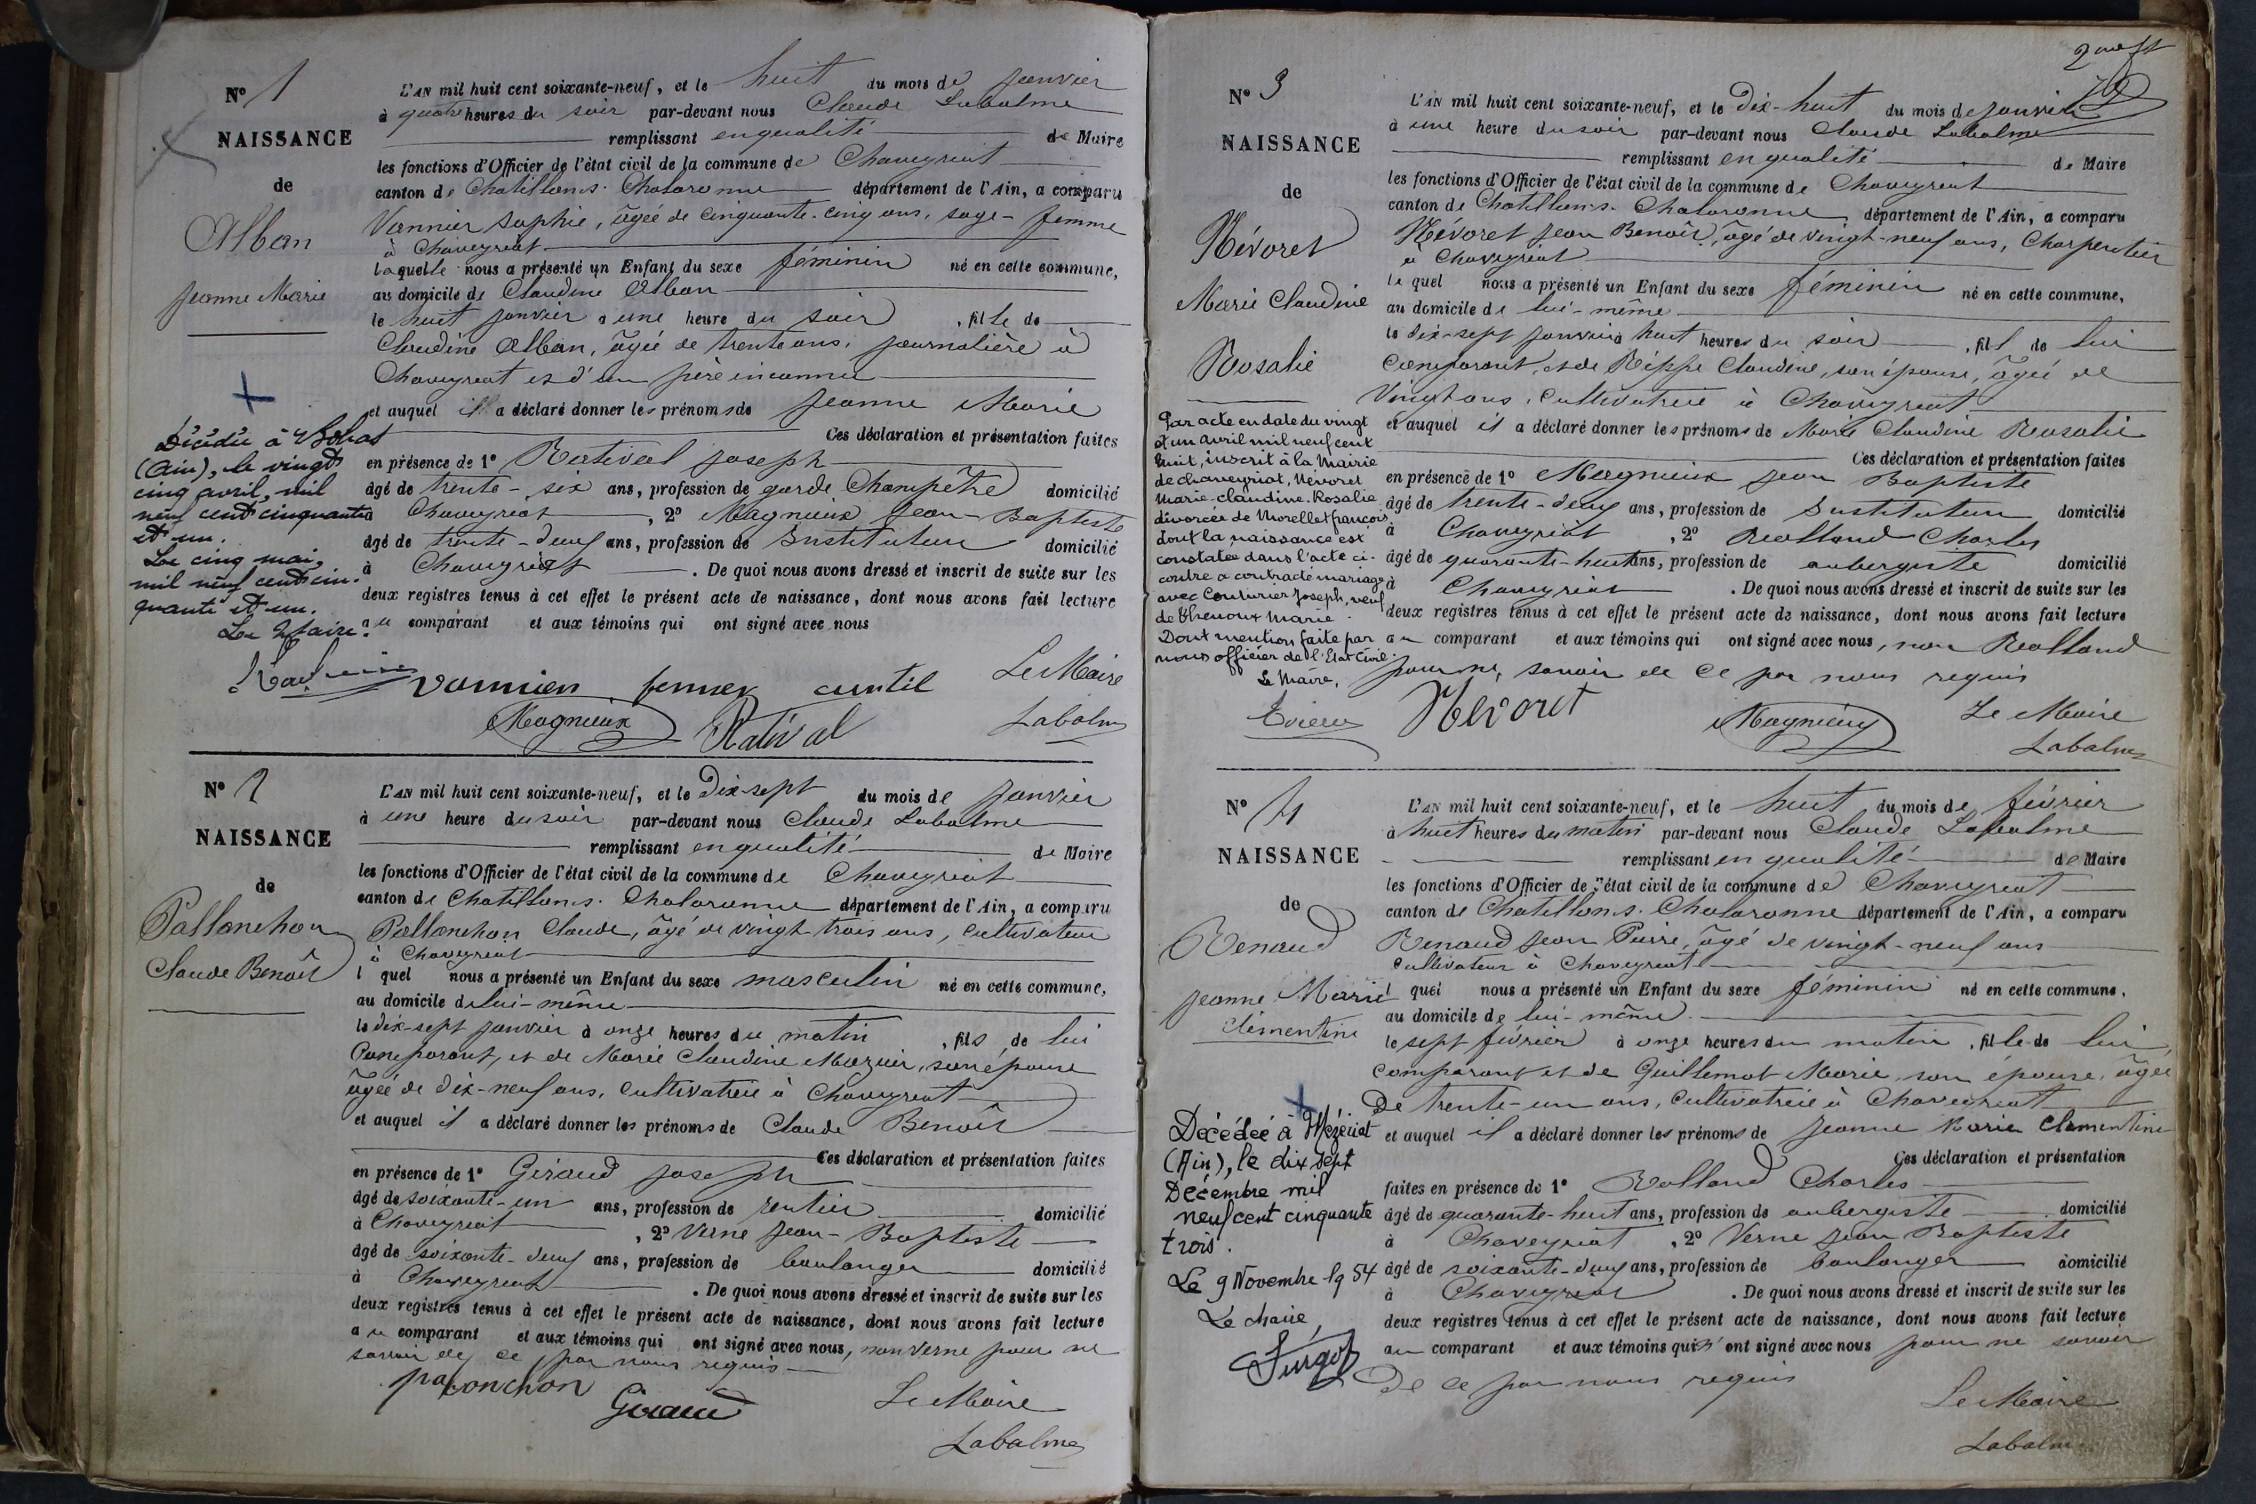 N° 1
NAISSANCE
de
Alban
Jeanne Marie
L'AN mil huit cent soixante-neuf, et le huit du mois de janvier
à quatre heures du soir par-devant nous Claude Labalme
remplissant en qualité de Maire
les fonctions d'Officier de l'état civil de la commune de Chaveyriat
canton de Chatillon s. Chalaronne département de l'Ain, a comparu
Vannier Sophie, âgée de cinquante-cinq ans, sage-femme
à Chaveyriat
laquelle nous a présenté un Enfant du sexe féminin né en cette commune,
au domicile de Claudine Alban
le huit janvier à une heure du soir, fille de
Claudine Alban, âgée de trente ans, journalière à
Chaveyriat et d'un père inconnu
et auquel il a déclaré donner les prénoms de Jeanne Marie
Ces déclaration et présentation faites
en présence de 1° Rativel Joseph
âgé de trente-six ans, profession de garde Champêtre domicilié
à Chaveyriat, 2° Magnieux Jean-Baptiste
âgé de trente-deux ans, profession de Instituteur domicilié
à Chaveyriat. De quoi nous avons dressé et inscrit de suite sur les
deux registres tenus à cet effet le présent acte de naissance, dont nous avons fait lecture
au comparant et aux témoins qui ont signé avec nous
Décédée à
(Ain), le vingt
cinq avril, mil
neuf cent cinquante
et un.
Le cinq mai,
mil neuf cent cin-
quante et un.
Le Maire.
Le Maire
Magnieux Rativel Labalme
N° 2
NAISSANCE
de
Pallanchon
Claude Benoît
L'AN mil huit cent soixante-neuf, et le Dix-sept du mois de janvier
à une heure du soir par-devant nous Claude Labalme
remplissant en qualité de Maire
les fonctions d'Officier de l'état civil de la commune de Chaveyriat
canton de Chatillon s. Chalaronne département de l'Ain, a comparu
Pallanchon Claude, âgé de vingt-trois ans, cultivateur
à Chaveyriat
l quel nous a présenté un Enfant du sexe masculin né en cette commune,
au domicile de lui-même
le dix-sept janvier à onze heures du matin, fils de lui
Comparant, et de Marie Claudine Mazuir, son épouse
âgée de dix-neuf ans, cultivatrice à Chaveyriat
et auquel il a déclaré donner les prénoms de Claude Benoît
Ces déclaration et présentation faites
en présence de 1° Giraud Joseph
âgé de soixante-un ans, profession de rentier domicilié
à Chaveyriat, 2° Verne Jean-Baptiste
âgé de soixante-deux ans, profession de boulanger domicilié
à Chaveyriat. De quoi nous avons dressé et inscrit de suite sur les
deux registres tenus à cet effet le présent acte de naissance, dont nous avons fait lecture
au comparant et aux témoins qui ont signé avec nous, non Verne pour ne
savoir de ce par nous requis
palonchon Giraud Le Maire
Labalme
N° 3
NAISSANCE
de
Névoret
Marie Claudine
Rosalie
L'AN mil huit cent soixante-neuf, et le Dix-huit du mois de janvier
à une heure du soir par-devant nous Claude Labalme
remplissant en qualité de Maire
les fonctions d'Officier de l'état civil de la commune de Chaveyriat
canton de Chatillon s. Chalaronne département de l'Ain, a comparu
Névoret Jean Benoît, âgé de vingt-neuf ans, Charpentier
à Chaveyriat
le quel nous a présenté un Enfant du sexe féminin né en cette commune,
au domicile de lui-même
le dix-sept janvier à huit heures du soir, fil de lui
Comparant, et de Réppe Claudine, son épouse, âgée de
Vingt ans, cultivatrice à Chaveyriat
et auquel il a déclaré donner les prénoms de Marie Claudine Rosalie
Ces déclaration et présentation faites
en présence de 1° Magnieux Jean Baptiste
âgé de trente-deux ans, profession de Instituteur domicilié
à Chaveyriat, 2° Rolland Charles
âgé de quarante-huit ans, profession de aubergiste domicilié
à Chaveyriat. De quoi nous avons dressé et inscrit de suite sur les
deux registres tenus à cet effet le présent acte de naissance, dont nous avons fait lecture
au comparant et aux témoins qui ont signé avec nous, non Rolland
pour ne savoir de ce par nous requis
Par acte en date du vingt
et un avril mil neuf cent
huit, inscrit à la Mairie
de chaveyriat, Névoret
Marie-claudine-Rosalie
divorcée de Morellet françois
dont la naissance est
constatée dans l'acte ci-
contre a contracté mariage
avec Couturier Joseph, veuf
de Thenoux Marie.
Dont mention faite par
nous officier de l'Etat Civil.
Le Maire,
Névoret Magnieux Le Maire
Labalme
N° 4
NAISSANCE
de
Renaud
Jeanne Marie
Clémentine
L'AN mil huit cent soixante-neuf, et le huit du mois de février
à huit heures du matin par-devant nous Claude Labalme
remplissant en qualité de Maire
les fonctions d'Officier de l'état civil de la commune de Chaveyriat
canton de Chatillon s. Chalaronne département de l'Ain, a comparu
Renaud Jean Pierre, âgé de vingt-neuf ans
cultivateur à Chaveyriat
l quel nous a présenté un Enfant du sexe féminin né en cette commune,
au domicile de lui-même
le sept février à onze heures du matin, fille de lui
comparant et de Guillemot Marie, son épouse, âgée
De trente-un ans, cultivatrice à Chaveyriat
et auquel il a déclaré donner les prénoms de Jeanne Marie Clementine
Ces déclaration et présentation
faites en présence de 1° Rolland Charles
âgé de quarante-huit ans, profession de aubergiste domicilié
à Chaveyriat, 2° Verne Jean Baptiste
âgé de soixante-deux ans, profession de boulanger domicilié
à Chaveyriat. De quoi nous avons dressé et inscrit de suite sur les
deux registres tenus à cet effet le présent acte de naissance, dont nous avons fait lecture
au comparant et aux témoins qui n'ont signé avec nous pour ne savoir
De ce par nous requis
Décédée à Mézériat
(Ain), le dix sept
Décembre mil
neuf cent cinquante
trois.
Le 9 Novembre 1954
Le Maire,
Le Maire
Labalme